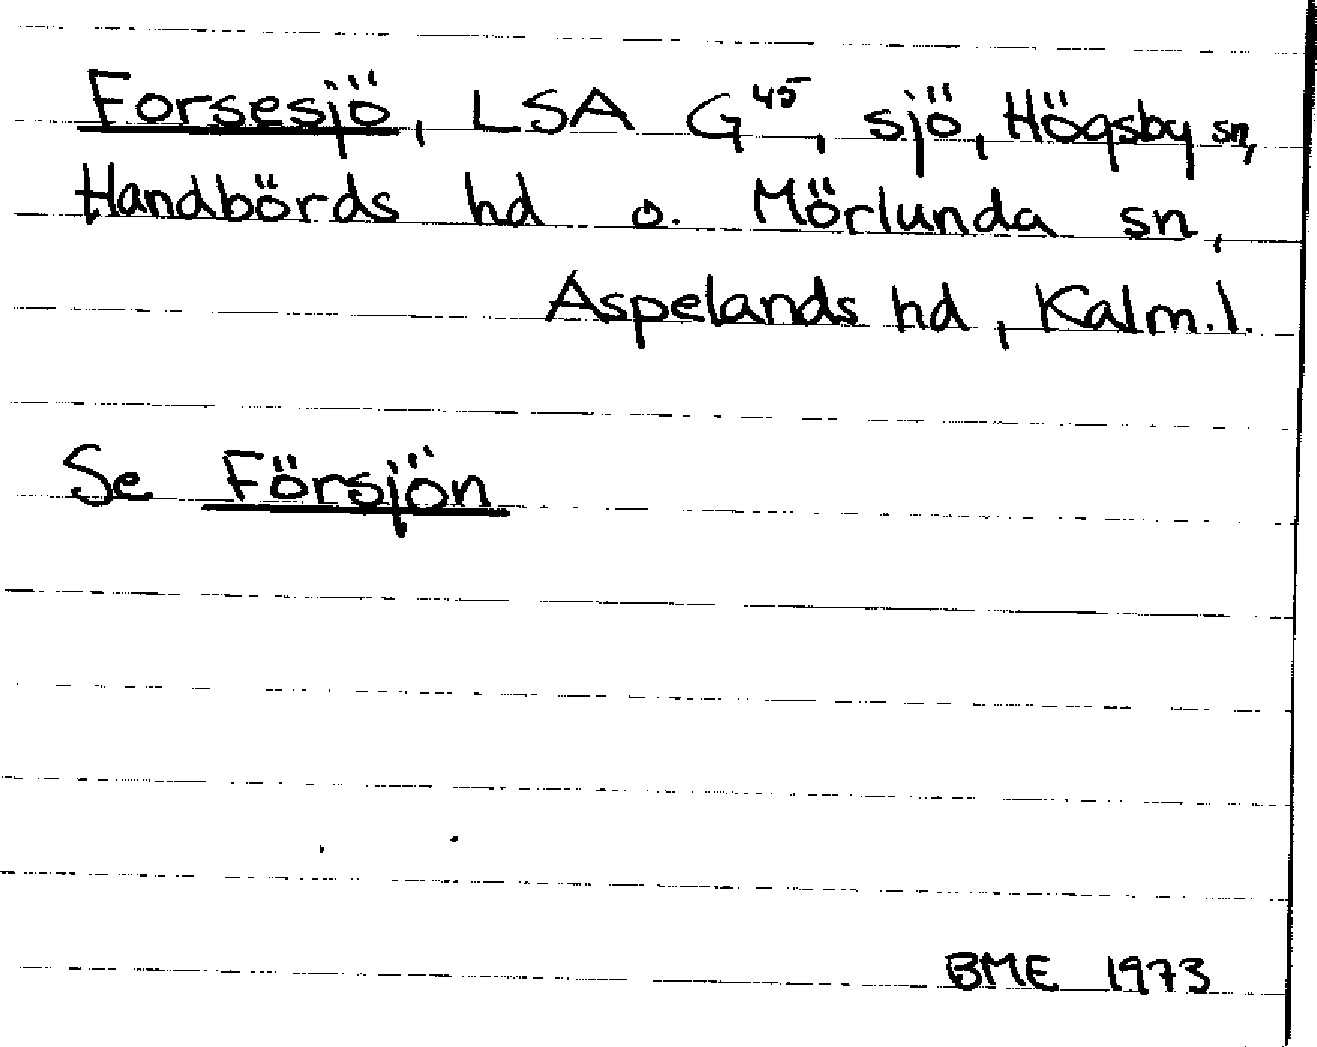 Forsesjö, LSA G⁴⁵, sjö, Högsby sn,
Handbörds hd o. Mörlunda sn,
Aspelands hd, Kalm.l.
Se Försjön
BME 1973